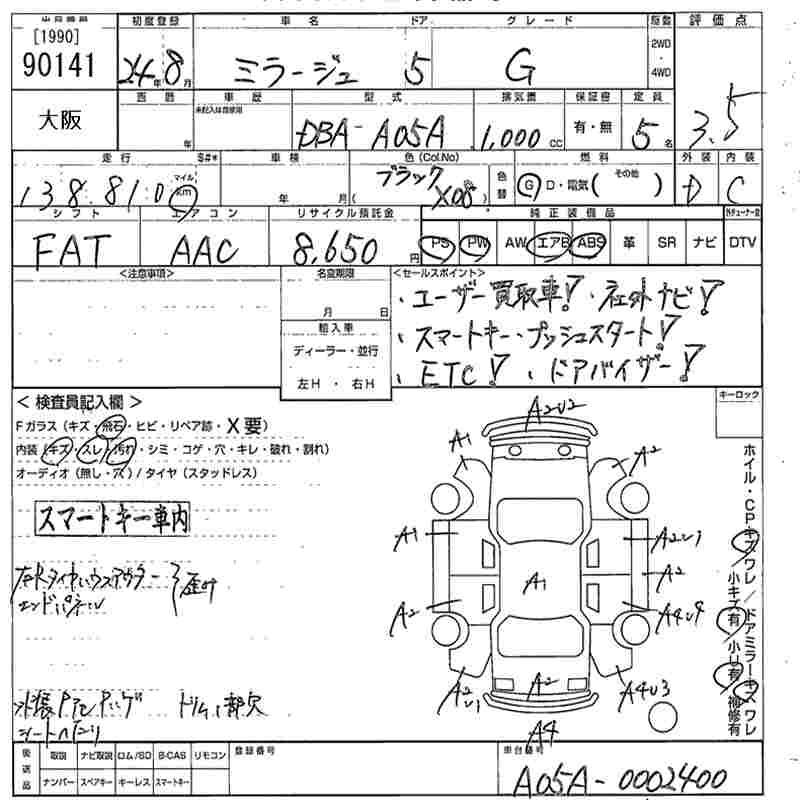 出品番号 初度登録 車名 ドア グレード 駆動 評価点
[1990]
90141 24年8月 ミラージュ 5 G 2WD・4WD 3.5
大阪 西暦 年 車歴 未記入は自家用 型式 排気量 保証書 定員
DBA-A05A 1,000cc 有・無 5名
走行 S#* 車検 色(Col.No) 燃料 外装 内装
138.810 マイル km 年 月 ブラック (X08) 色替 G D・電気( その他 ) D C
シフト エアコン リサイクル預託金 純正装備品
FAT AAC 8,650円 PS PW AW エアB ABS 革 SR ナビ DTV
<注意事項> 名変期限 <セールスポイント>
月 日
・ユーザー買取車! ・社外ナビ!
輸入車
・スマートキー・プッシュスタート!
ディーラー・並行
・ETC! ・ドアバイザー!
左H・右H
キーロック
<検査員記入欄>
Fガラス(キズ・飛石・ヒビ・リペア跡・X要)
内装(キズ・スレ・汚れ・シミ・コゲ・穴・キレ・破れ・割れ)
オーディオ(無し・穴)/タイヤ(スタッドレス)
スマートキー車内
エンドパネル
A2U2
A1 A2
A1 A2U1
A1 A2
A2 A4U4
A2U1 A2 A4U3
A4
ホイル・CP・キズ ワレ/ドアミラー・キズ ワレ
小キズ有・小U有・補修有
後送品 取説 ナビ取説 ロム/SD B-CAS リモコン 登録番号 車台番号
ナンバー スペアキー キーレス スマートキー
A05A-0002400